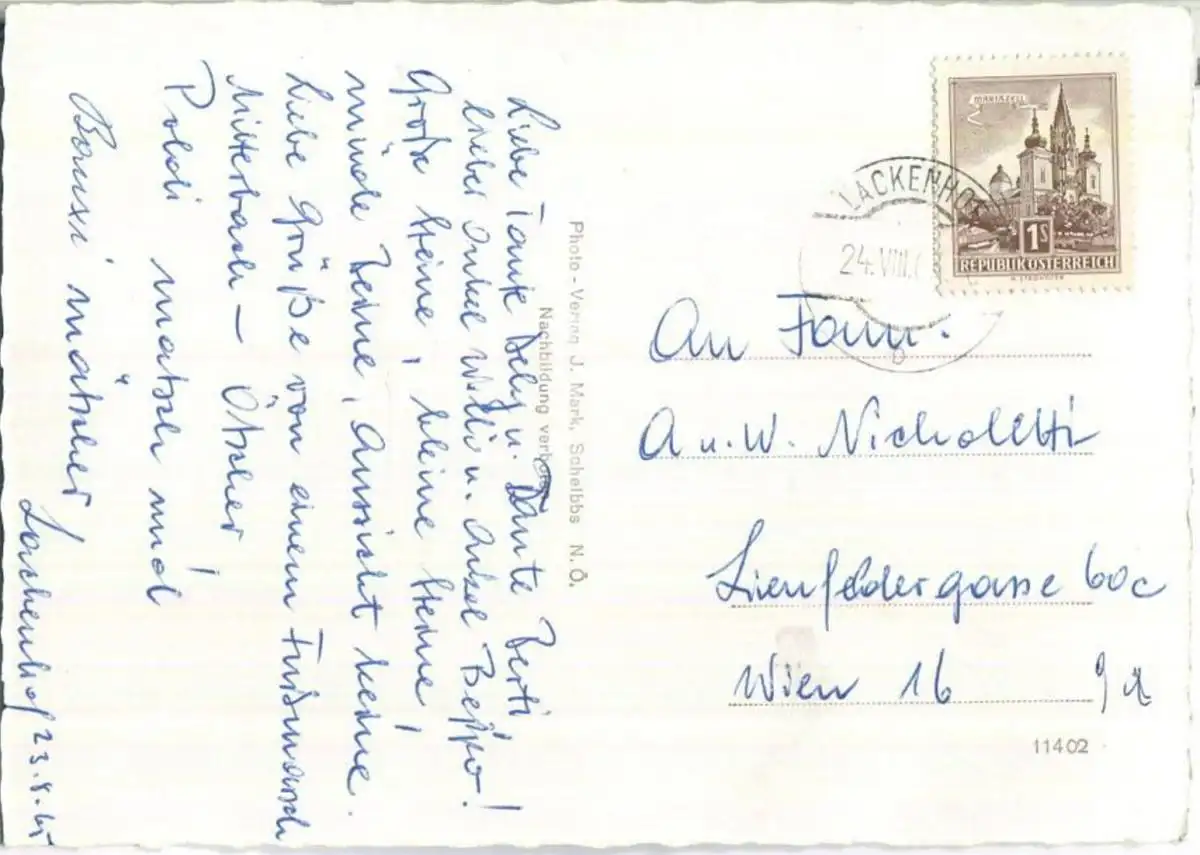 Liebe Tante Delly u. Tante Berti
lieber Onkel Willi u. Onkel Beppo!
Große Steine, kleine Steine!
müde Beine, Aussicht keine.
Liebe Grüße von einem Fußmarsch
Mitterbach – Ötscher!
Poldi matsch und
Bouxi mätscher
Lackenhof 23.8.65
Photo-Verlag J. Mark, Scheibbs N.Ö.
Nachbildung verboten
MARIAZELL
1S
REPUBLIK ÖSTERREICH
LACKENHOF
24. VIII.
An Fam.
A u. W. Nicholetti
Lienfeldergasse 60c
Wien 16
11402